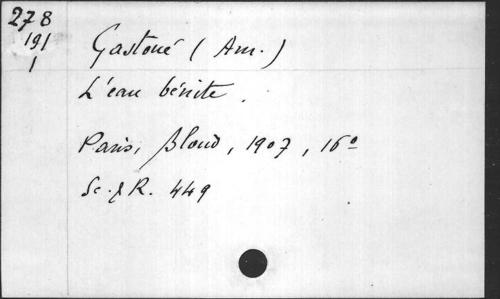 278
191
1
Gastoué (Am.)
L'eau bénite.
Paris, Bloud, 1907, 16°
Sc. & R. 449